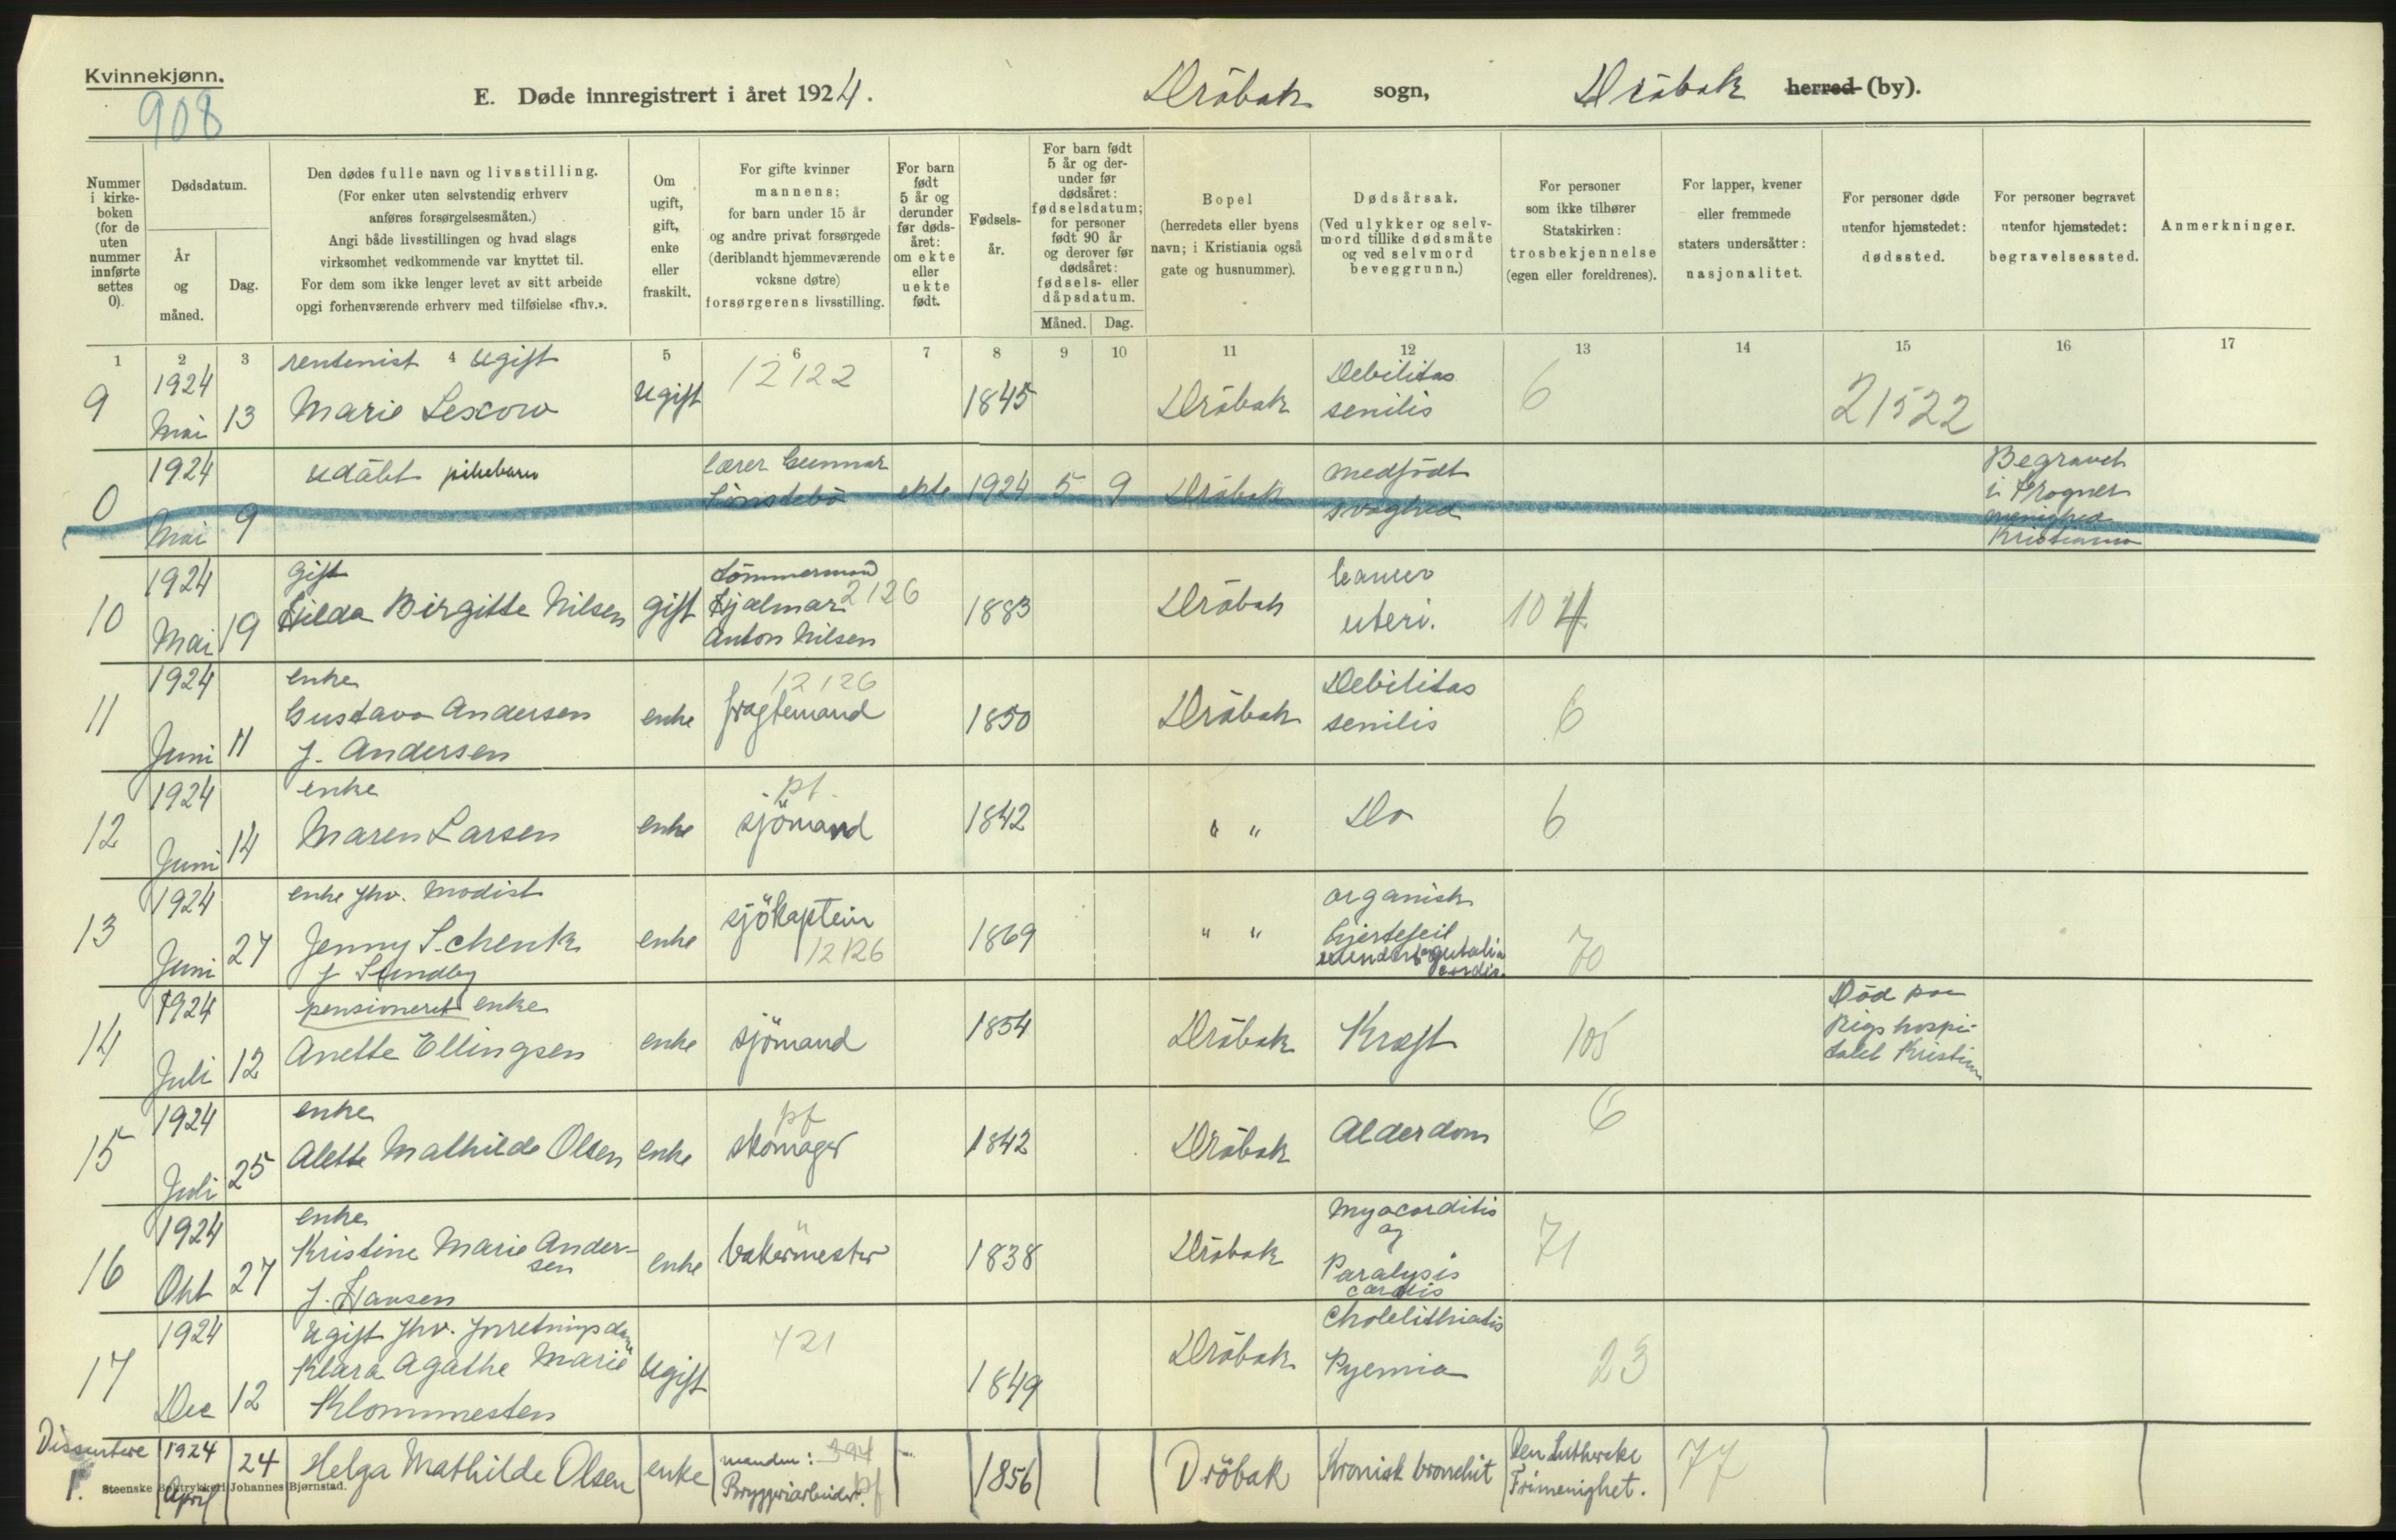 Kvinnekjønn.
908
E. Døde innregistrert i året 1924.
Dröbak sogn,
Dröbak herred (by).
Nummer i kirke-boken (for de uten nummer innførte settes 0).
Dødsdatum.
År og måned.
Dag.
Den dødes fulle navn og livsstilling.
(For enker uten selvstendig erhverv
anføres forsørgelsesmåten.)
Angi både livsstillingen og hvad slags
virksomhet vedkommende var knyttet til.
For dem som ikke lenger levet av sitt arbeide
opgi forhenværende erhverv med tilføielse «fhv.».
Om ugift, gift, enke eller fraskilt.
For gifte kvinner
mannens;
for barn under 15 år
og andre privat forsørgede
(deriblandt hjemmeværende
voksne døtre)
forsørgerens livsstilling.
For barn født 5 år og derunder før døds-året: om ekte eller uekte født.
Fødsels-år.
For barn født 5 år og der-under før dødsåret: fødselsdatum; for personer født 90 år og derover før dødsåret: fødsels- eller dåpsdatum.
Måned. Dag.
Bopel
(herredets eller byens
navn; i Kristiania også
gate og husnummer).
Dødsårsak.
(Ved ulykker og selv-
mord tillike dødsmåte
og ved selvmord
beveggrunn.)
For personer
som ikke tilhører
Statskirken:
trosbekjennelse
(egen eller foreldrenes).
For lapper, kvener
eller fremmede
staters undersåtter:
nasjonalitet.
For personer døde
utenfor hjemstedet:
dødssted.
For personer begravet
utenfor hjemstedet:
begravelsessted.
Anmerkninger.
1 2 3 4 5 6 7 8 9 10 11 12 13 14 15 16 17
9 1924 Mai 13 rentenist Ugift
Marie Lexow Ugift 12122 1845 Dröbak Debilitas
senilis 6 21522
0 1924 Mai 9 udöbt pikebarn lærer Gunnar
ekte 1924 5 9 Dröbak medfödt
svaghed Begravet
i Frogner
menighed
Kristiania
10 1924 Mai 19 gift
Hilda Birgitte Nilsen gift Tömmermand
Hjalmar 2126
Anton Nilsen 1883 Dröbak Cancer
uteri. 104
11 1924 Juni 11 enke
Gustava Andersen
f. Andersen enke 12126
fragtemand 1850 Dröbak Debilitas
senilis 6
12 1924 Juni 14 enke
Maren Larsen enke pf.
sjömand 1842 " " Do 6
13 1924 Juni 27 enke fhv. Modist
Jenny Schenk
f Sundby enke sjökaptein
12126 1869 " " organisk
hjertefeil
cordis. 70
14 1924 Juli 12 pensioneret enke
Anette Ellingsen enke sjömand 1854 Dröbak Kræft 105 Död paa
Rigshospi-
talet Kristiania
15 1924 Juli 25 enke
Alette Mathilde Olsen enke pf
skomager 1842 Dröbak Alderdom 6
16 1924 Okt 27 enke
Kristine Marie Ander-
sen
f. Hansen enke bakermester 1838 Dröbak Myocarditis
og
Paralysis
cordis 71
17 1924 Dec 12 Ugift fhv.
Klara Agathe Marie
Klommesten Ugift 421 1849 Dröbak Cholelithiasis
Pyemia 23
Dissentere
1. 1924 April 24 Helga Mathilde Olsen enke manden: 394
Bryggeriarbeider. pf 1856 Dröbak Kronisk bronchit Den Lutherske
Frimenighet. 77
Steenske Boktrykkeri Johannes Bjørnstad.